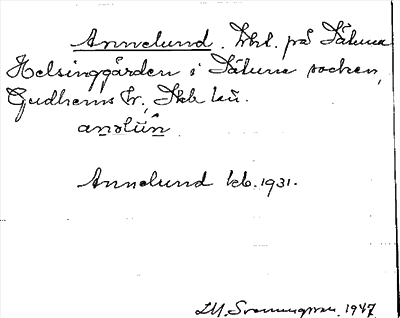 Annelund. Lht. på Sätuna
Helsinggården i Sätuna socken,
Gudhems hr, Skb lä.
anəlun̂
Annelund kb. 1931.
1947